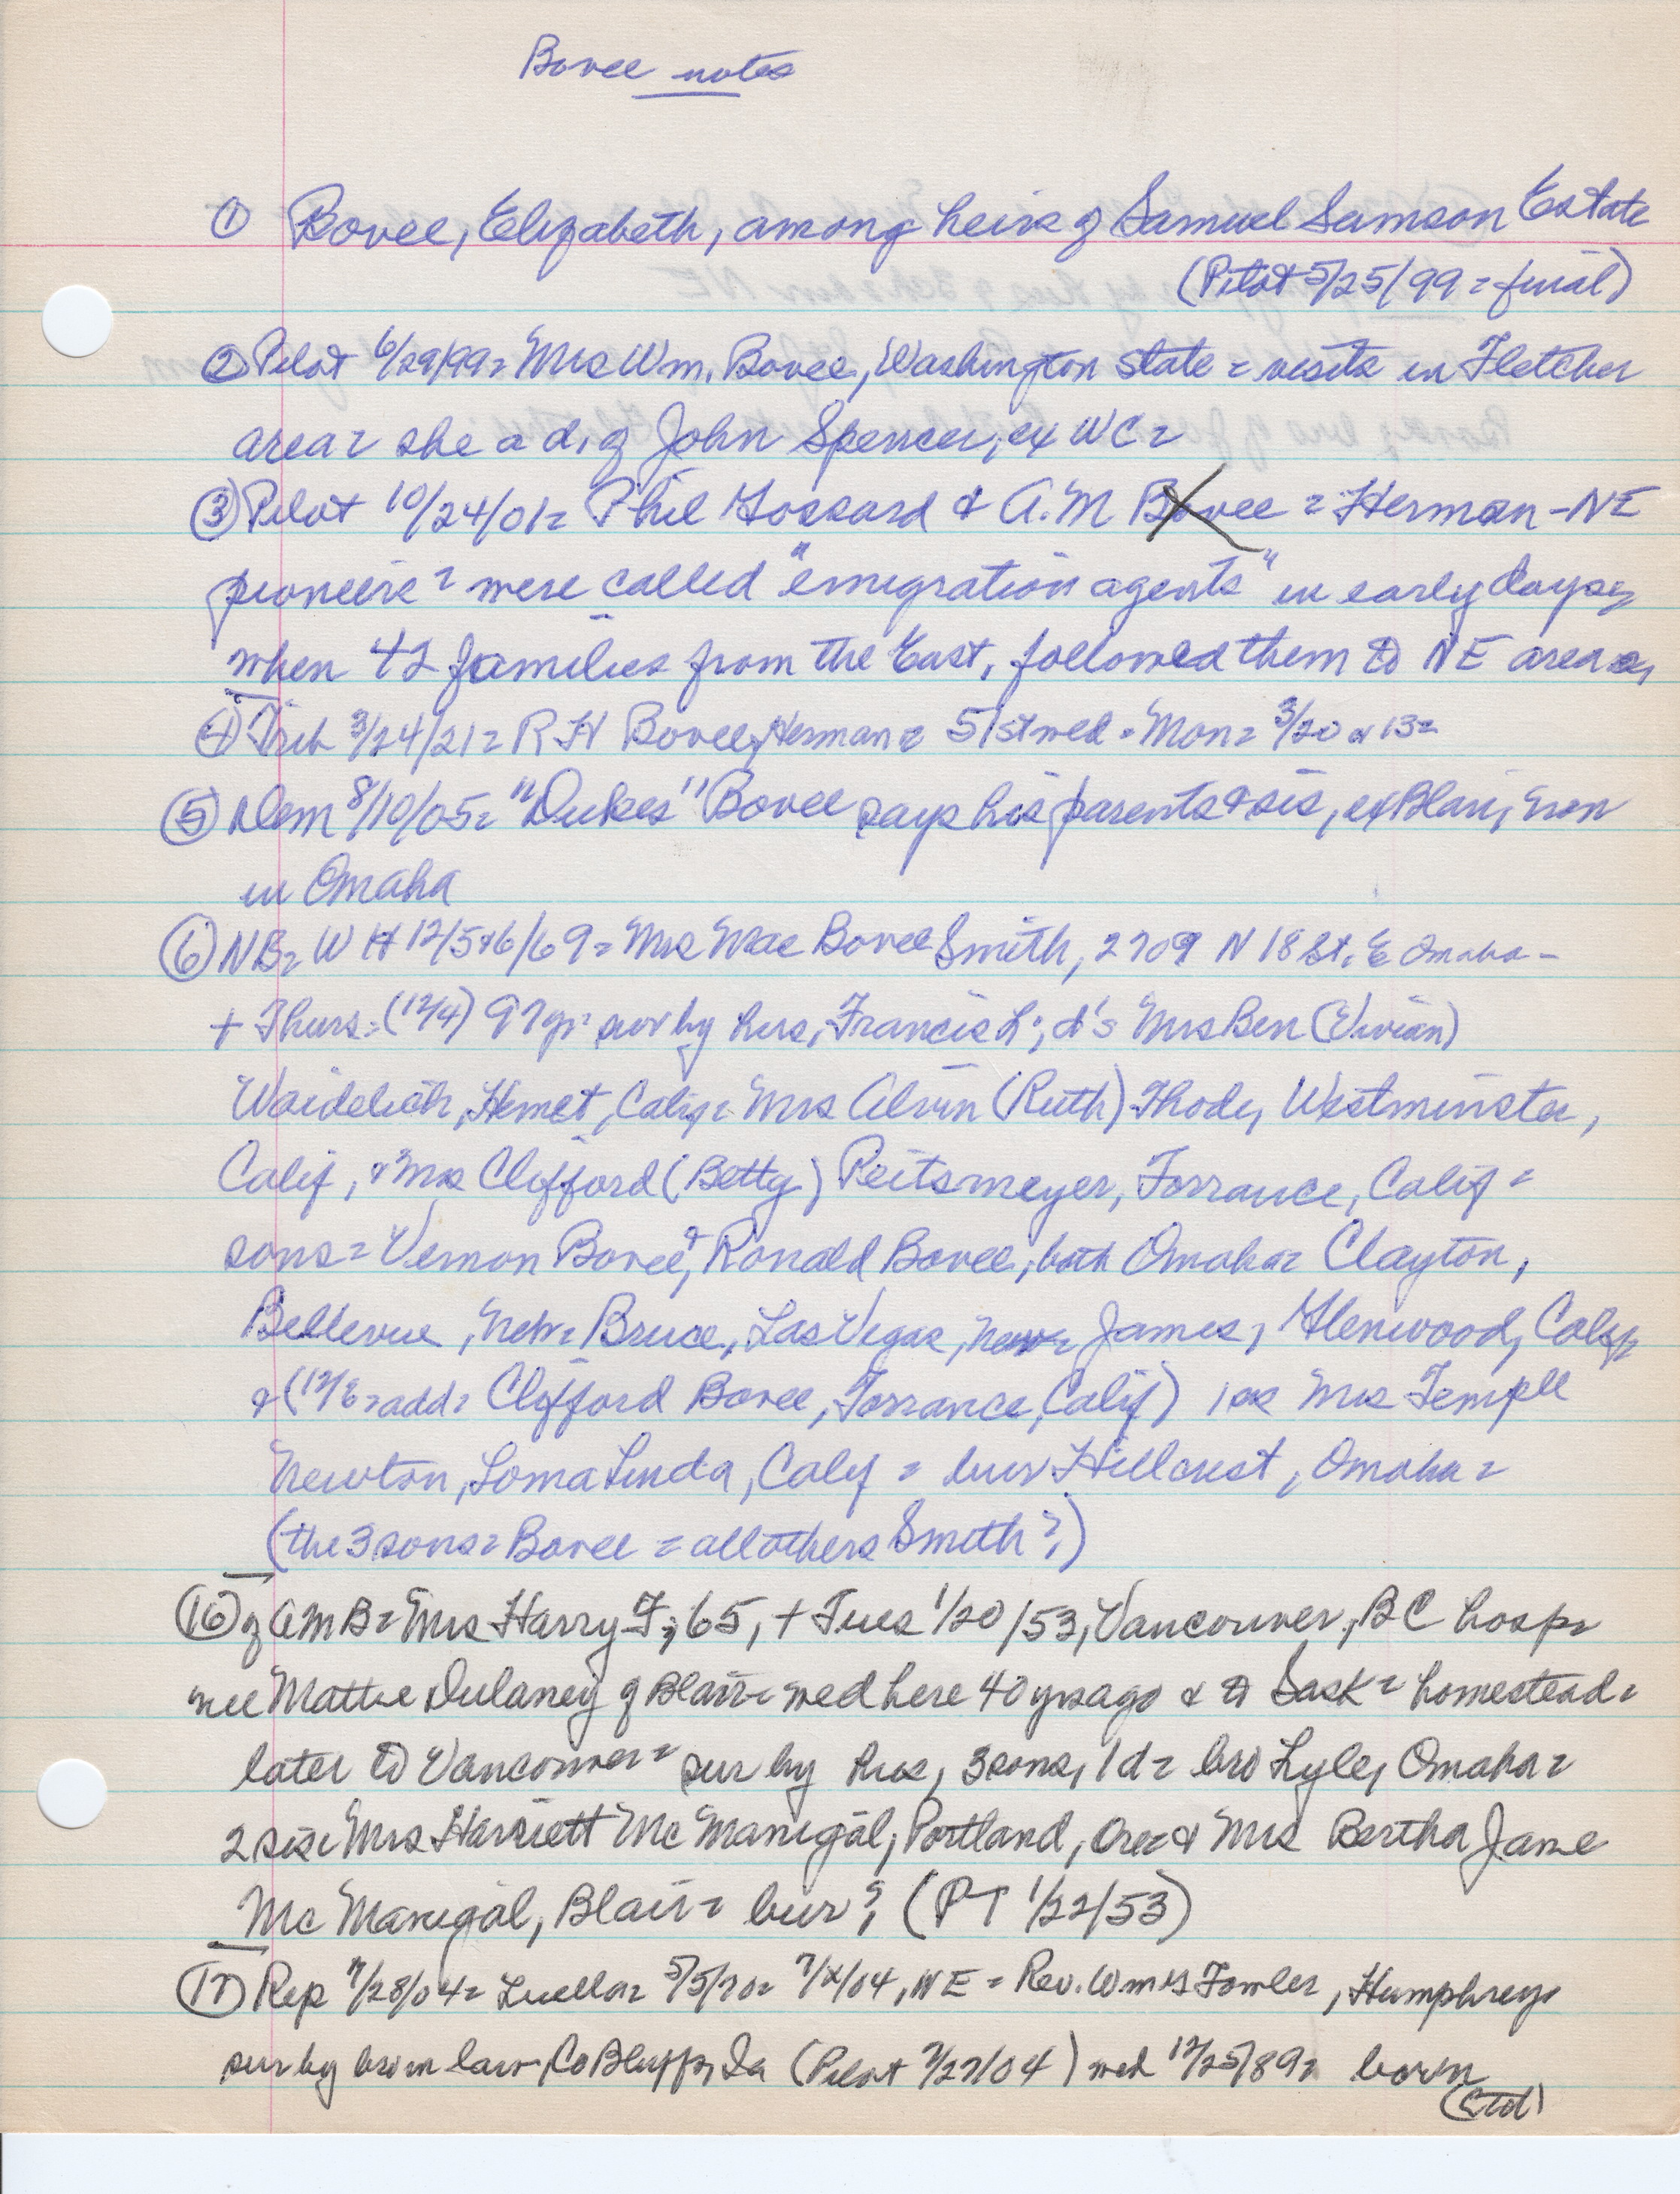 Bovee notes
① Bovee, Elizabeth, among heirs of Samuel Samson Estate
(Pilot 5/25/99 = final)
② Pilot 6/29/99 = Mrs Wm. Bovee, Washington state = visits in Fletcher
area = she a d. of John Spencer, ex WC =
③ Pilot 10/24/01 = Phil Gossard & A.M Bovee = Herman - NE
pioneers = were called "emigration agents" in early days,
when 42 families from the East, followed them to NE area
④ Trib 3/24/21 = R H Bovee, Herman = 51st wed = Mon = 3/20 or 13 =
⑤ Dem 8/10/05 = "Dukes" Bovee says his parents & sis, ex Blair, now
in Omaha
⑥ NB = W H 12/5 & 6/69 = Mrs Mae Bovee Smith, 2709 N 18 St. E Omaha -
+ Thurs = (12/4) 97 yr = sur by hus, Francis L; d's Mrs Ben (Vivian)
Waidelich, Hemet, Calif = Mrs Alvin (Ruth) Thode, Westminster,
Calif, & Mrs Clifford (Betty) Peitsmeyer, Torrance, Calif =
sons = Vernon Bovee, & Ronald Bovee, both Omaha = Clayton,
Bellevue, Nebr = Bruce, Las Vegas, Nev = James, Glenwood, Calif
& (12/6 = add = Clifford Bovee, Torrance, Calif) 1 sis Mrs Temple
Newton, Loma Linda, Calif = bur Hillcrest, Omaha =
(the 3 sons = Bovee = all others Smith?)
⑯ of AMB = Mrs Harry F; 65, + Tues 1/20/53, Vancouver, BC hosp =
nee Mattie Dulaney of Blair = wed here 40 yrs ago & to Sask = homestead =
later to Vancouver = sur by hus, 3 sons, 1 d = bro Lyle, Omaha =
2 sis = Mrs Harriett Mc Manigal, Portland, Ore = & Mrs Bertha Jane
Mc Manigal, Blair = bur? (PT 1/22/53)
⑰ Rep 7/28/04 = Luella = 5/5/70 = 7/x/04, NE = Rev. Wm Fowler, Humphrey
sur by bro in law, Co Bluffs, Ia (Pilot 7/27/04) wed 12/25/89 = born
(Ctd)